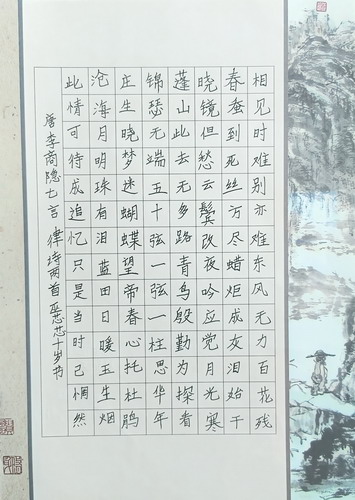 相见时难别亦难东风无力百花残
春蚕到死丝方尽蜡炬成灰泪始干
晓镜但愁云鬓改夜吟应觉月光寒
蓬山此去无多路青鸟殷勤为探看
锦瑟无端五十弦一弦一柱思华年
庄生晓梦迷蝴蝶望帝春心托杜鹃
沧海月明珠有泪蓝田日暖玉生烟
此情可待成追忆只是当时已惘然
唐李商隐七言律诗两首 芯十岁书